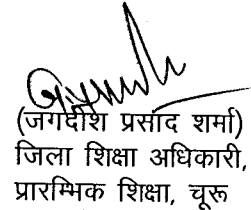 (जगदीश प्रसाद शर्मा)
जिला शिक्षा अधिकारी,
प्रारम्भिक शिक्षा, चूरू